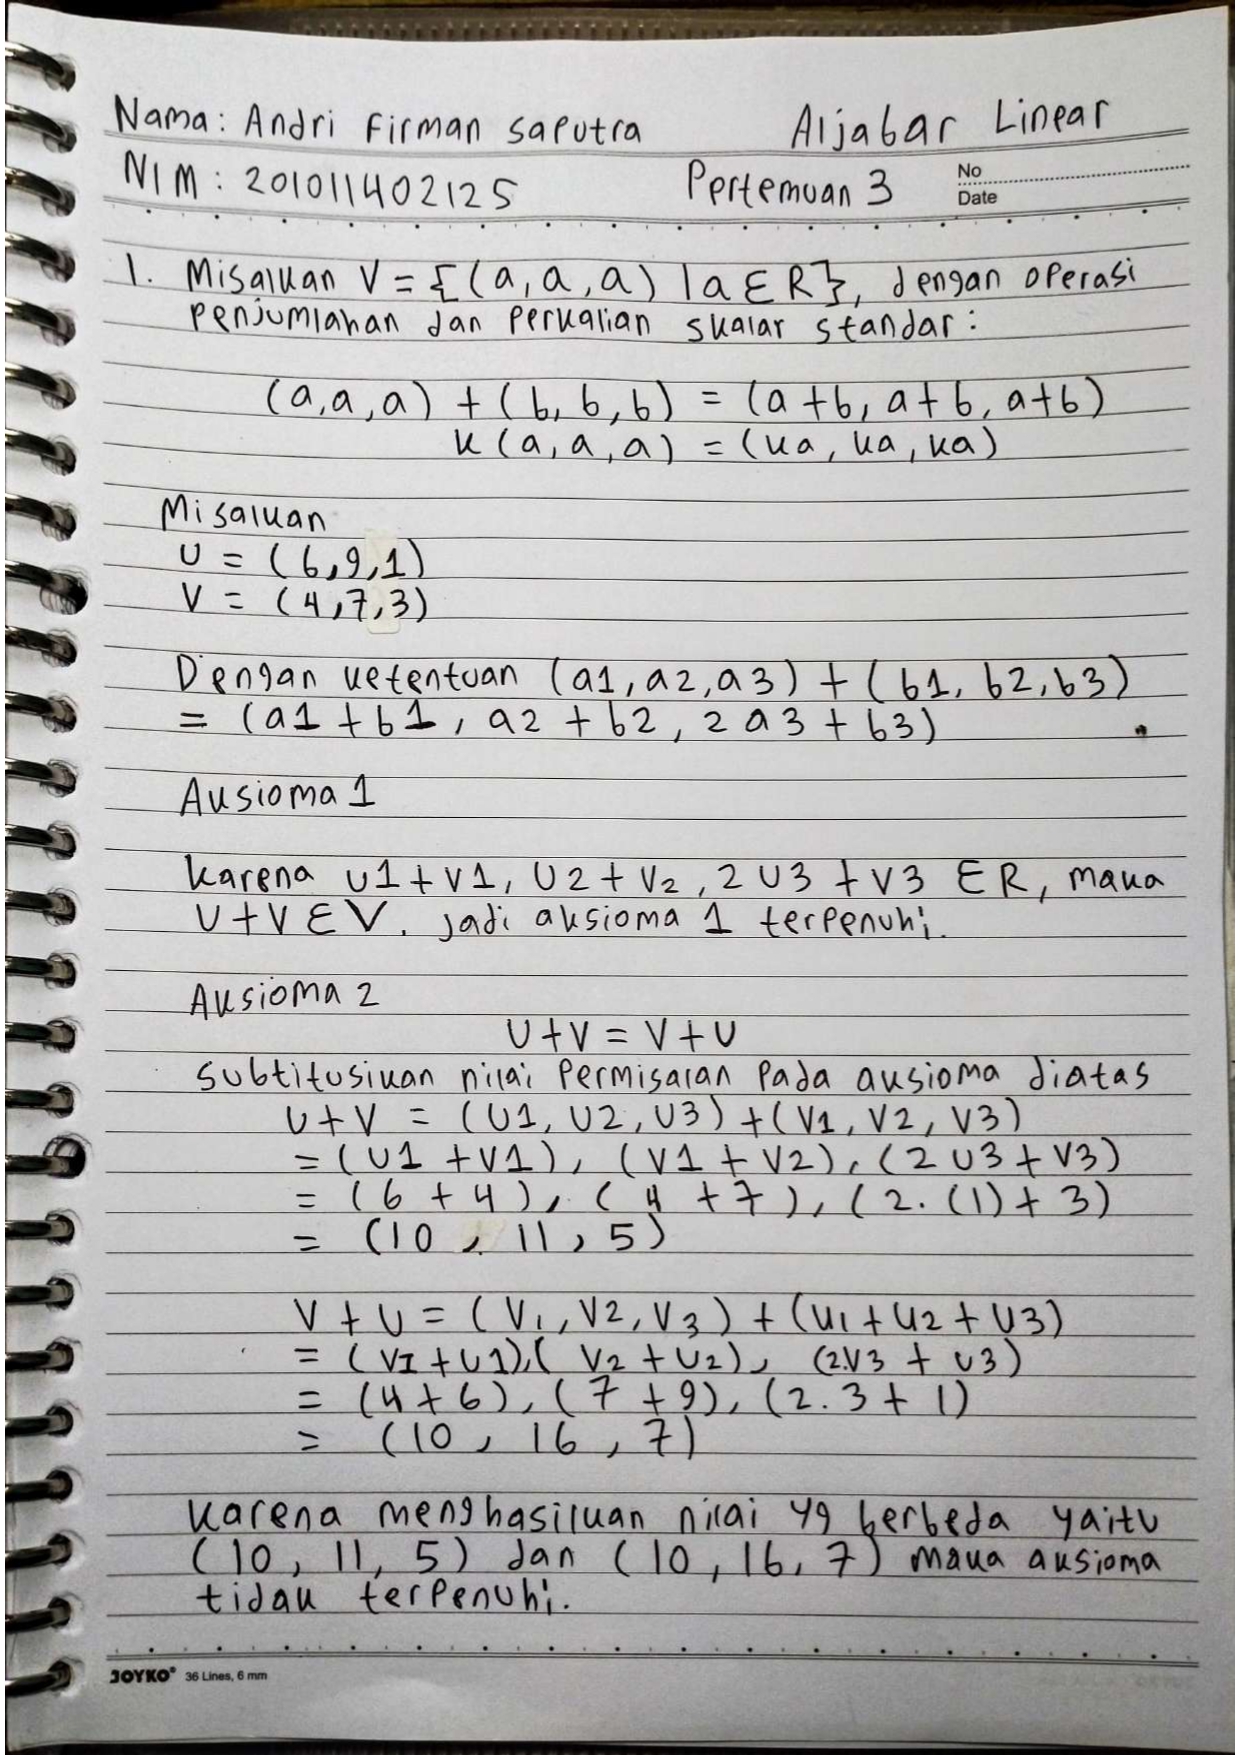 Nama: Andri Firman Saputra Aljabar Linear
NIM : 201011402125 Pertemuan 3 No
Date
1. Misalkan V = {(a, a, a) | a ∈ R}, dengan operasi
penjumlahan dan perkalian skalar standar :
(a,a,a) + (b, b, b) = (a+b, a+b, a+b)
k (a, a, a) = (ka, ka, ka)
Misalkan
U = (6,9,1)
V = (4,7,3)
Dengan ketentuan (a1, a2, a3) + (b1, b2, b3)
= (a1 + b1, a2 + b2, 2 a3 + b3)
Aksioma 1
karena U1+V1, U2+V2, 2 U3 + V3 ∈ R, maka
U+V ∈ V. jadi aksioma 1 terpenuhi.
Aksioma 2
U+V = V+U
Subtitusikan nilai permisalan pada aksioma diatas
U+V = (U1, U2, U3) + (V1, V2, V3)
= (U1 + V1), (V1 + V2), (2 U3 + V3)
= (6 + 4), (4 + 7), (2. (1) + 3)
= (10, 11, 5)
V + U = (V1, V2, V3) + (U1 + U2 + U3)
= (V1 + U1), (V2 + U2), (2.V3 + U3)
= (4+6), (7 + 9), (2. 3 + 1)
= (10, 16, 7)
karena menghasilkan nilai yg berbeda yaitu
(10, 11, 5) dan (10, 16, 7) maka aksioma
tidak terpenuhi.
JOYKO® 36 Lines, 6 mm